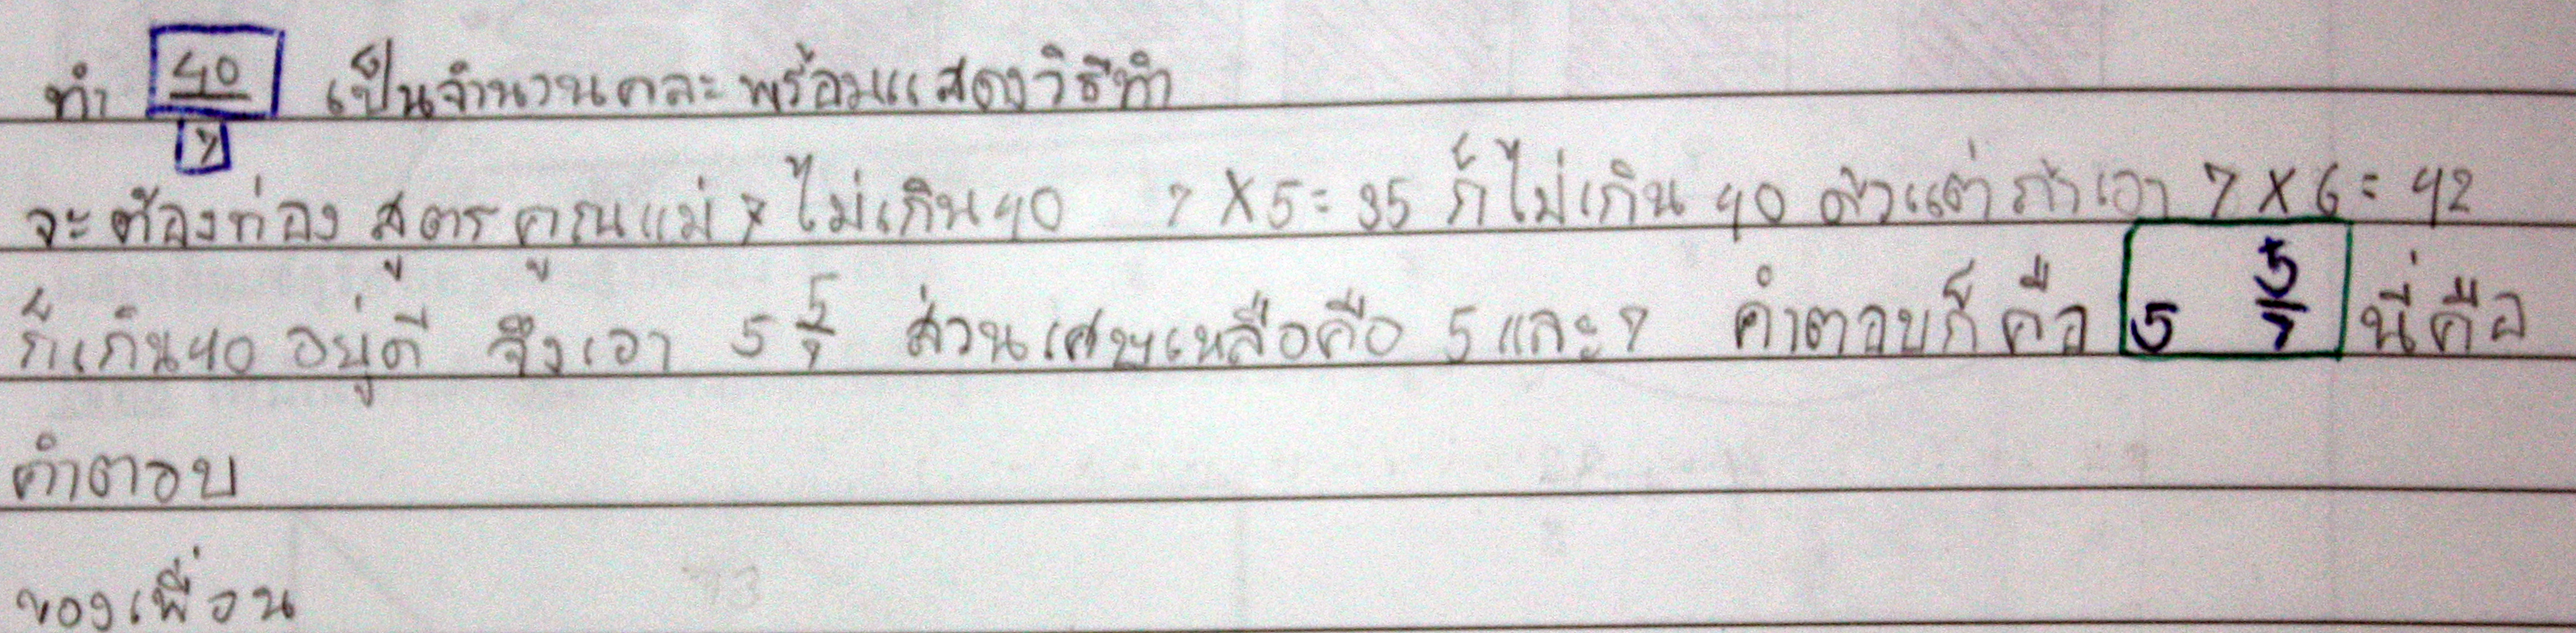 ทำ 40/7 เป็นจำนวนคละพร้อมแสดงวิธีทำ
จะต้องท่องสูตรคูณแม่ 7 ไม่เกิน 40 7 X 5 = 35 ก็ไม่เกิน 40 แต่ถ้าเอา 7 X 6 = 42
ก็เกิน 40 อยู่ดี จึงเอา 5 5/7 ส่วนเศษเหลือคือ 5 และ 7 คำตอบก็คือ 5 5/7 นี่คือ
คำตอบ
ของเพื่อน